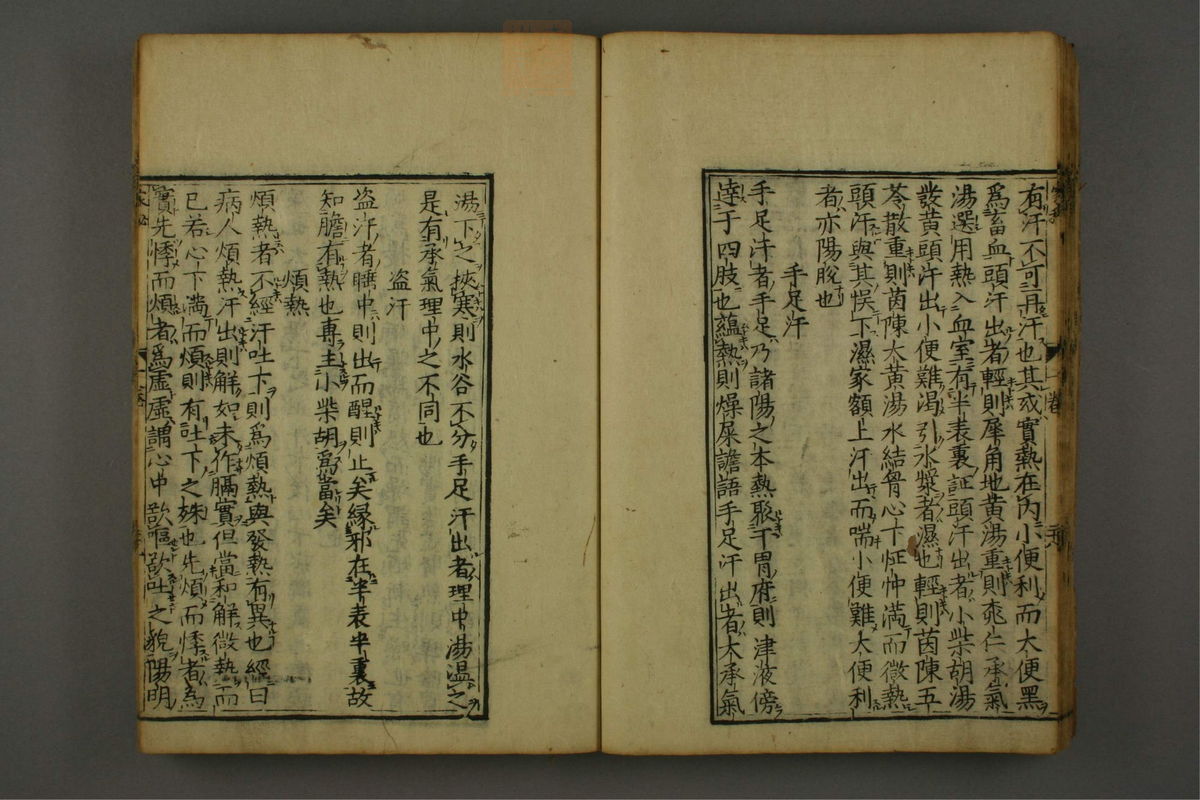 有汗不可再汗也其或實熱在內小便利而大便黑
爲畜血頭汗出者輕則犀角地黃湯重則桃仁承氣
湯選用熱入血室有半表裏証頭汗出者小柴胡湯
發黃頭汗出小便難渴引水漿者濕也輕則茵陳五
苓散重則茵陳大黃湯水結胷心下怔忡滿而微熱
頭汗與其悞下濕家額上汗出而喘小便難大便利
者亦陽脫也
手足汗
手足汗者手足乃諸陽之本熱聚于胃府則津液傍
達于四肢也蘊熱則燥屎譫語手足汗出者大承氣
湯下之挾寒則水谷不分手足汗出者理中湯温之
是有承氣理中之不同也
盗汗
盗汗者睡中則出而醒則止矣緣邪在半表半裏故
知膽有熱也專主小柴胡爲當矣
煩熱
煩熱者不經汗吐下則爲煩熱與發熱有異也經曰
病人煩熱汗出則解如未作膈實但當和解微熱而
已若心下滿而煩則有吐下之殊也先煩而悸者為
實先悸而煩者爲虛虛謂心中欲嘔欲吐之貌陽明